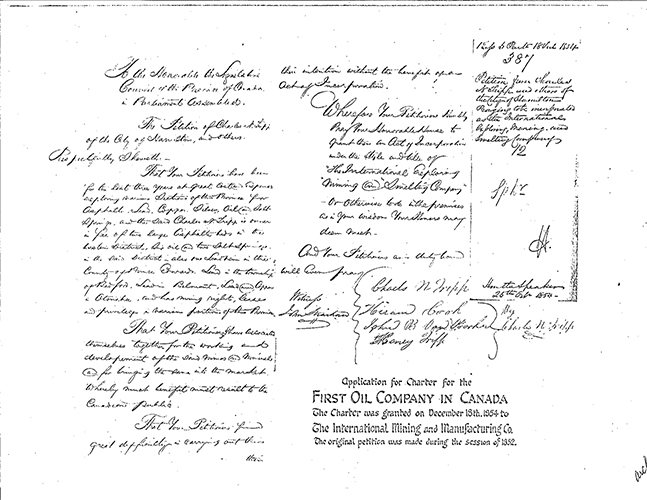 To the Honorable the Legislative
Council of the Province of Canada,
in Parliament Assembled.
The Petition of Charles N. Tripp
of the City of Hamilton, and others.
Respectfully Sheweth —
That Your Petitioners have been
for the last three years at great cost and expense
exploring various Sections of the Province for
Asphalt, Lead, Copper, Silver, Oil and Salt
Springs, and the said Charles N Tripp is owner
in fee of two large Asphalt beds in the
Western District, also oil and two Salt Springs
in the said District – also one Lead vein in the
County of Prince Edward. Lead in the township
of Bedford, Lead in Belmont, Lead and Copper
in and has mining rights, leases
and privileges in various portions of the Province
That Your Petitioners have associated
themselves together for the working and
developement of the said Mines and Minerals
and for bringing the same into the market
whereby much benefit must result to the
Canadian public.
That Your Petitioners find
great difficulty in carrying out their
their
their intention without the benefit of an
Act of Incorporation.
Wherefore Your Petitioners humbly
Pray Your Honorable House to
grant them an Act of Incorporation
under the Style and title of
"The International Exploring
"Mining and Smelting Company"
– or otherwise to do in the premises
as in your wisdom Your Honors may
deem meet –
And Your Petitioners as in duty bound
will Ever pray
Witness
Charles N Tripp
Hiram Cook
John B Van Voorhies
Henry Tripp
By
Charles N. Tripp
18 Oct 1854
387
Petition from Charles
N Tripp and others of
the City of Hamilton
Praying to be incorporated
as the International
Exploring, Mining, and
Smelting Company
12
H.
Hon the Speaker
26th Oct 1854
Application for Charter for the
FIRST OIL COMPANY IN CANADA
The Charter was granted on December 18th, 1854 to
The International Mining and Manufacturing Co.
The original petition was made during the session of 1852.